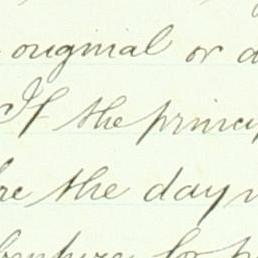 original or
If the princi
re the day
for